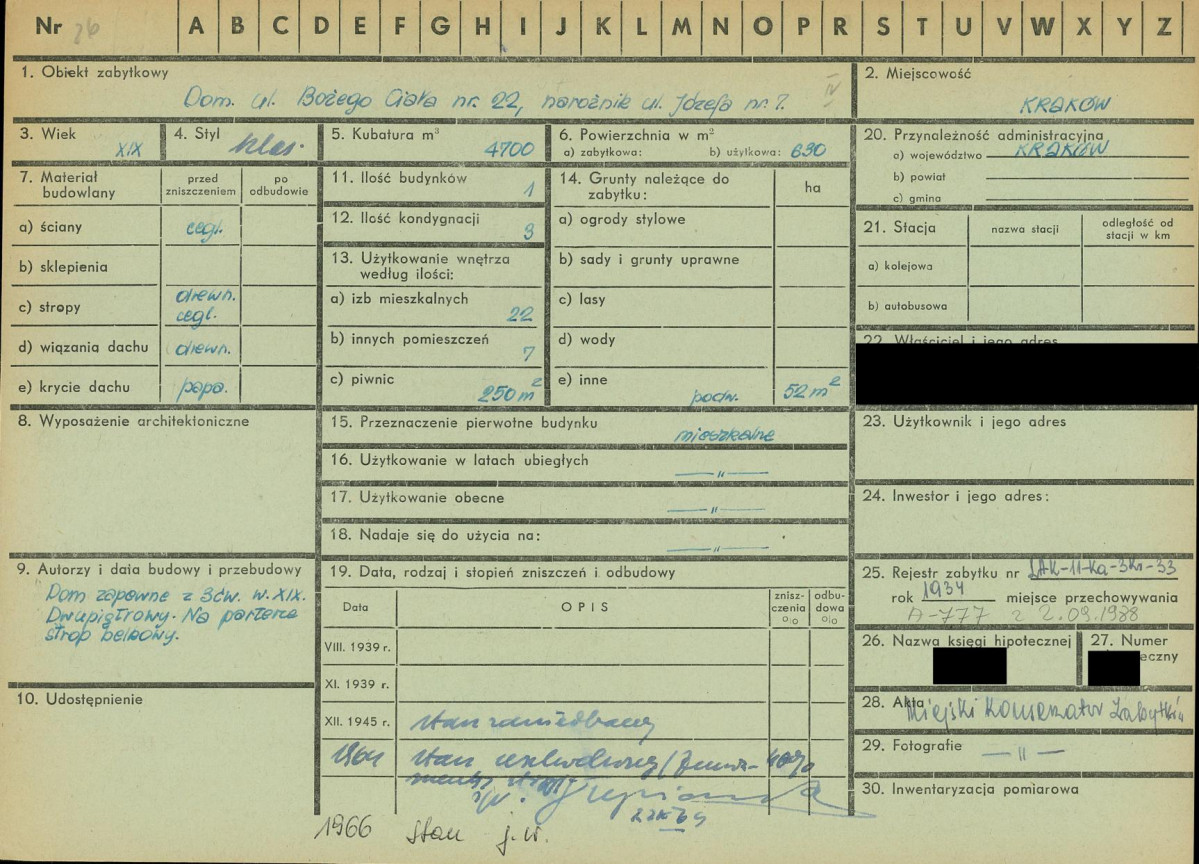 Nr 26 A B C D E F G H I J K L M N O P R S T U V W X Y Z
1. Obiekt zabytkowy
Dom. ul. Bożego Ciała nr. 22, narożnik ul. Józefa nr. 7. IV
2. Miejscowość
KRAKÓW
3. Wiek
XIX
4. Styl
klas.
5. Kubatura m³
4700
6. Powierzchnia w m²
a) zabytkowa: b) użytkowa: 690
20. Przynależność administracyjna
a) województwo KRAKÓW
b) powiat
c) gmina
7. Materiał budowlany
przed zniszczeniem
po odbudowie
a) ściany cegl.
b) sklepienia
c) stropy drewn. cegl.
d) wiązania dachu drewn.
e) krycie dachu papa.
11. Ilość budynków 1
12. Ilość kondygnacji 3
13. Użytkowanie wnętrza według ilości:
a) izb mieszkalnych 22
b) innych pomieszczeń 7
c) piwnic 250 m²
14. Grunty należące do zabytku: ha
a) ogrody stylowe
b) sady i grunty uprawne
c) lasy
d) wody
e) inne podw. 52 m²
21. Stacja
nazwa stacji
odległość od stacji w km
a) kolejowa
b) autobusowa
22. Właściciel i jego adres
8. Wyposażenie architektoniczne
15. Przeznaczenie pierwotne budynku
mieszkalne
16. Użytkowanie w latach ubiegłych
— „ —
17. Użytkowanie obecne
— „ —
18. Nadaje się do użycia na:
— „ —
23. Użytkownik i jego adres
24. Inwestor i jego adres:
9. Autorzy i data budowy i przebudowy
Dom zapewne z 3ćw. w. XIX.
Dwupiętrowy. Na parterze
strop belkowy.
10. Udostępnienie
19. Data, rodzaj i stopień zniszczeń i odbudowy
Data
OPIS
zniszczenia %
odbudowa %
VIII. 1939 r.
XI. 1939 r.
XII. 1945 r. stan zaniedbany
1964 stan 40%
22 XI 64
1966 stan j. w.
25. Rejestr zabytku nr
rok 1934 miejsce przechowywania
A-777 z 2.09.1988
26. Nazwa księgi hipotecznej
27. Numer
eczny
28. Akta
Miejski Konserwator Zabytków
29. Fotografie — „ —
30. Inwentaryzacja pomiarowa